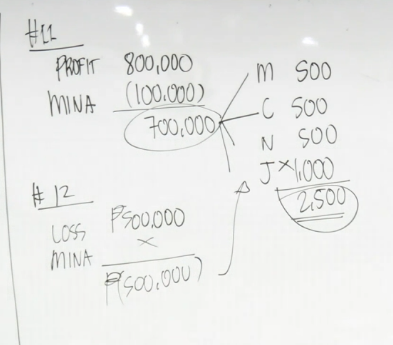 #11
PROFIT 800,000
MINA (100,000)
700,000
M 500
C 500
N 500
J × 1,000
2,500
# 12
LOSS ₱500,000
MINA ×
₱(500,000)